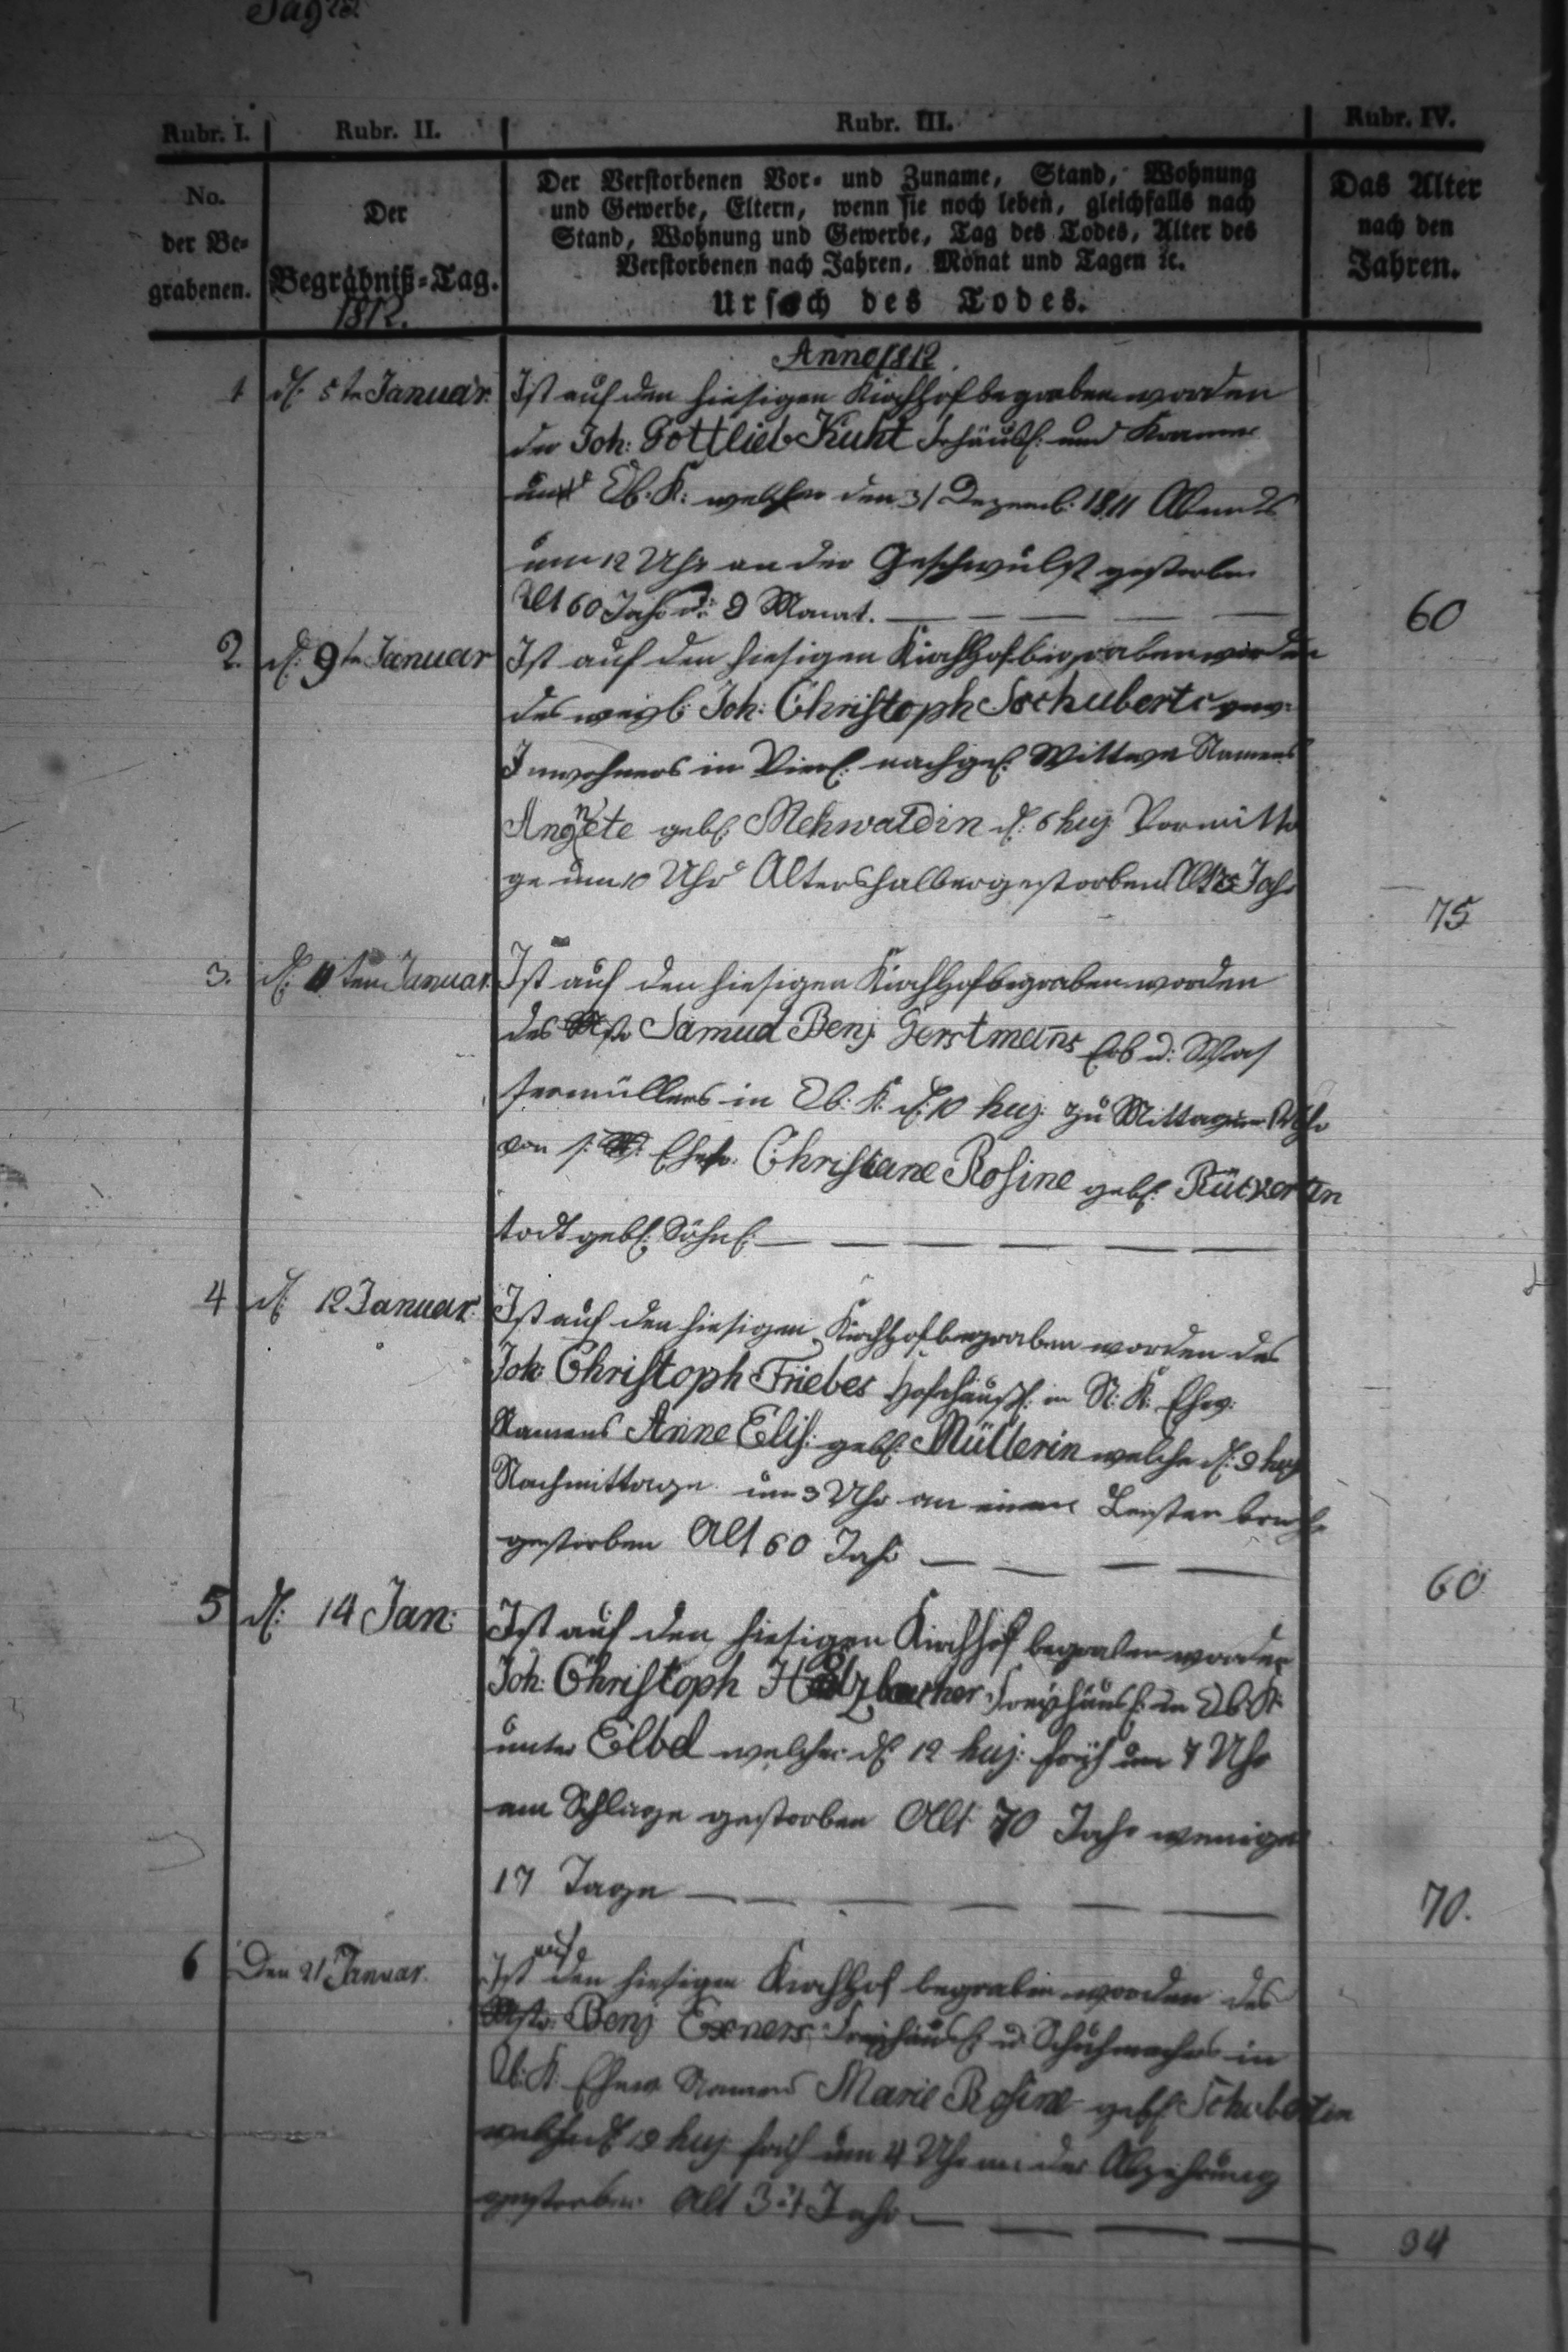 Rubr. I. Rubr. II. Rubr. III. Rubr. IV.
No. der Be= grabenen.
Der Begräbniß=Tag.
1812.
Der Verstorbenen Vor= und Zuname, Stand, Wohnung
und Gewerbe, Eltern, wenn sie noch leben, gleichfalls nach
Stand, Wohnung und Gewerbe, Tag des Todes, Alter des
Verstorbenen nach Jahren, Monat und Tagen ꝛc.
Ursach des Todes.
Das Alter nach den Jahren.
Anno 1812.
1 d. 5te Januar. Ist auf den hiesigen Kirchhof begraben worden
der Joh: Gottlieb Kuht und Kramer
Ob. K: welcher den 31 Dezemb: 1811 Abends
um 12 Uhr an der Geschwulst gestorben
Alt 60 Jahr u: 9 Monat. 60
2. d. 9te Januar Ist auf den hiesigen Kirchhof begraben worden
des weyl: Joh: Christoph Sschuberts gew:
Inwohners in nachgel: Wittwe Namens
gebl: Mehwaldin d. 6 huj Vormitta
ge um 10 Uhr Altershalber gestorben Alt 75 Jahr 75
3. d. 11ten Januar. Ist auf den hiesigen Kirchhof begraben worden
des Mstr Samuel Benj Gerstmañs Erb u: Was
sermüllers in Ob. K. d. 10 huj: zu Mittag um 12 Uhr
von s: Christiane Rosine gebl: Rückertin
todt gebl: Söhnl:
4 d. 12 Januar. Ist auf den hiesigen Kirchhof begraben worden des
Joh: Christoph Friebes Hofehäusl: in N: K: Ehew:
Namens Anne Elis: gebl: Müllerin welche d. 9 huj
Nachmittage um 3 Uhr an einem Leisten bruche
gestorben Alt 60 Jahr 60
5 d. 14 Jan: Ist auf den hiesigen Kirchhof begraben worden
Joh: Christoph Holzbecher Freyhäusl: in Ob. K:
unter Elbel welcher d. 12 huj: früh um 7 Uhr
am Schlage gestorben Alt 70 Jahr weniger
17 Tage 70.
6 Den 21 Januar. Ist auf den hiesigen Kirchhof begraben worden des
Mstr. Benj Exners Freyhäusl: u. Schuhmachers in
Ob: K: Ehew. Namens Marie Rosine gebl: Schubertin
welche d. 19 huj früh um 4 Uhr an der Abzehrung
gestorben Alt 34 Jahr 34